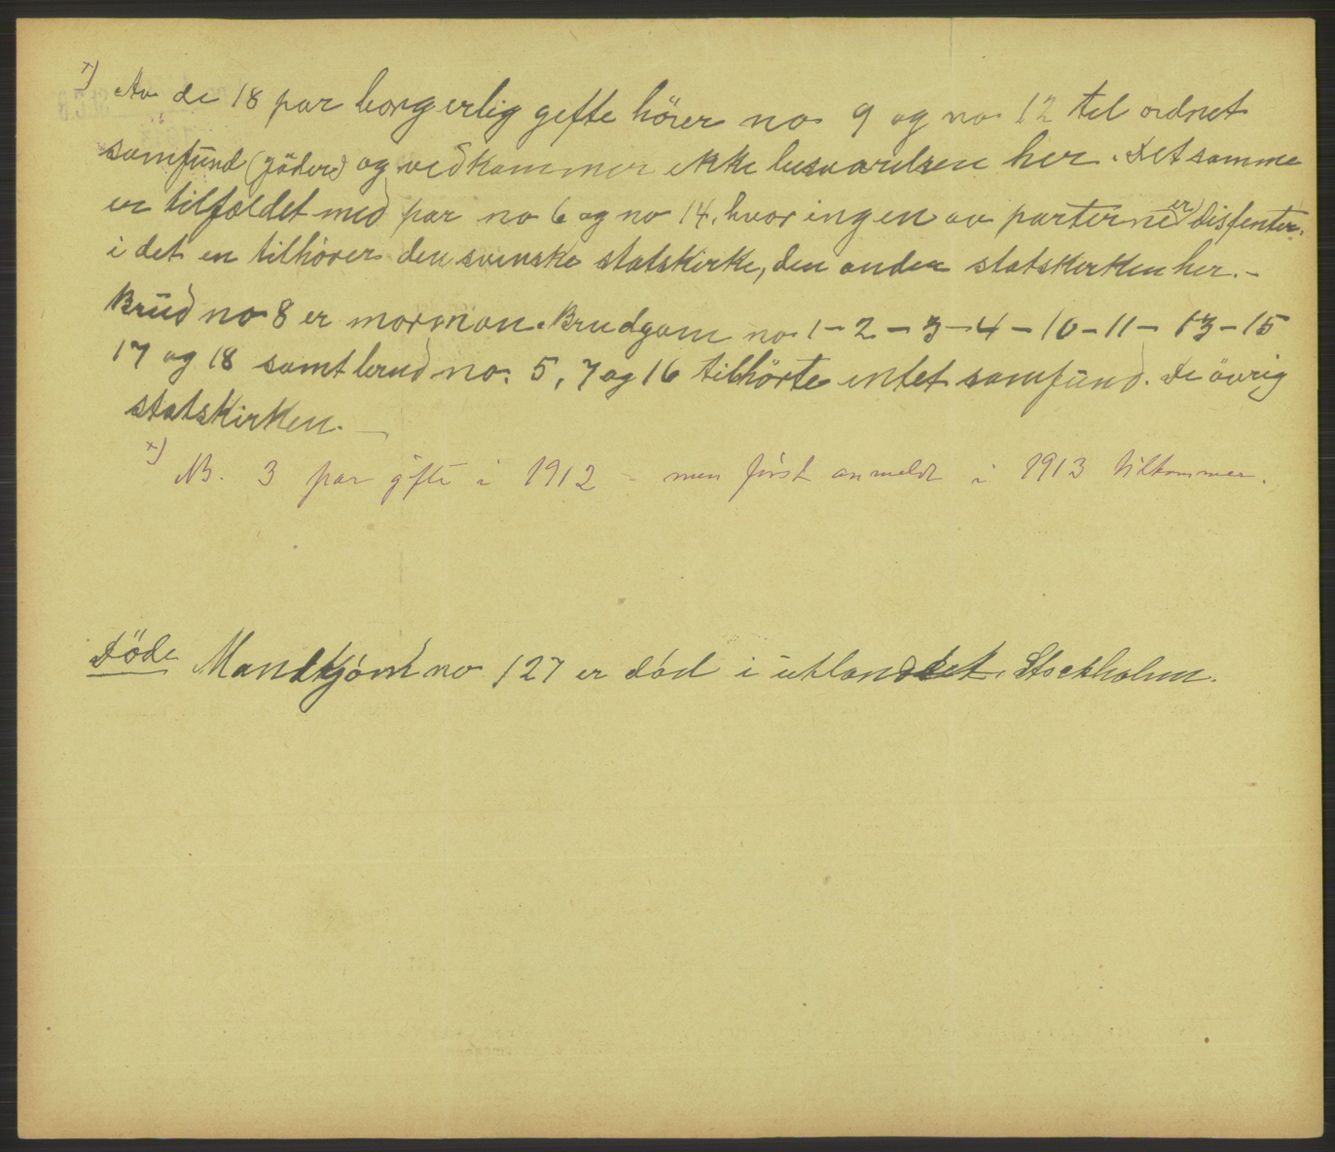 x) Av de 18 par borgerlig gifte hörer no 9 og no 12 til ordnet
samfünd (jöder) og vedkommer ikke besvarelsen her. Det samme
er tilfældet med par no 6 og no 14, hvor ingen av parterne er disfenter,
i det en tilhörer den svenske statskirke, den anden statskirken her. -
Brüd no 8 er mormon. Brudgom no 1 - 2 - 3 - 4 - 10 - 11 - 13 - 15
17 og 18 samt brud no. 5, 7 og 16 tilhörte intet samfünd. De övrig
statskirken. -
x) NB. 3 par gifte i 1912 - men først anmeldt i 1913 tilkommer.
Döde Mandkjöm no 127 er död i ütlandet, Stockholm.